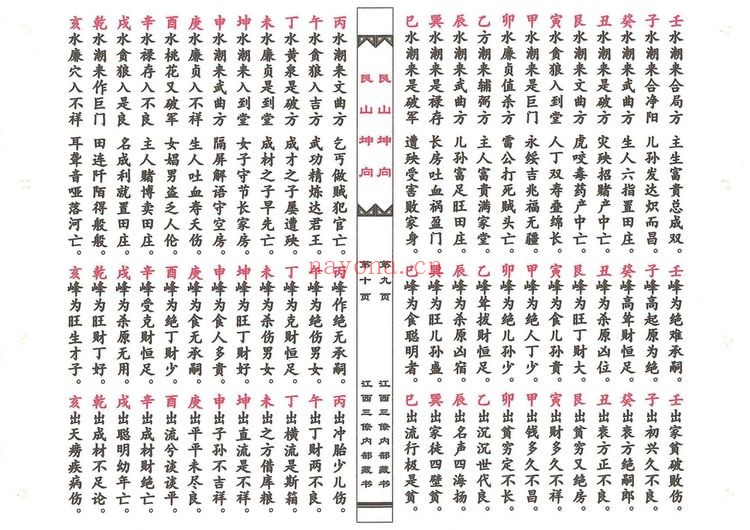 壬水潮来合局方 主生富貴总成双。 壬峰为绝难承嗣。 壬出家贫破败伤。
子水潮来合净阳 儿孙发达炽而昌。 子峰高起原为绝。 子出初兴久不良。
癸水潮来武曲方 生人六指置田庄。 癸峰高耸财恒足。 癸出丧方绝嗣郎。
丑水潮来是破方 灾殃招賭产中亡。 丑峰为杀原凶位。 丑出丧方正不良。
艮水潮来是破军 虎咬毒药产中亡。 艮峰为旺丁财大。 艮出贫穷又绝房。
寅水贪狼入到堂 人丁双寿叠绵长。 寅峰为食儿孙贵。 寅出财多久不良。
甲水潮来是巨门 永绥吉兆福无疆。 甲峰为绝人丁少。 甲出钱多久不昌。
卯水廉贞值杀方 雷公打死贼头亡。 卯峰为绝儿孙少。 卯出贫穷定不长。
乙方潮来辅弼方 主人富貴满家堂。 乙峰耸拔财恒足。 乙出沉沉世代良。
辰水潮来武曲方 儿孙富足旺田庄。 辰峰为杀原凶宿。 辰出名声四海扬。
巽水潮来是禄存 长房吐血祸盈门。 巽峰为旺儿孙盛。 巽出家徒四壁贫。
巳水潮来是破军 遭殃受害败家身。 巳峰为食聪明者。 巳出流行极是贫。
艮山坤向 第九页 江西三僚内部藏书
艮山坤向 第十页 江西三僚内部藏书
丙水潮来文曲方 乞丐做贼犯官亡。 丙峰作绝无承嗣。 丙出冲胎少儿伤。
午水贪狼入吉方 武功精炼达君王。 午峰为绝伤男女。 午出丁财两不良。
丁水黄泉是破方 成才之子屡遭殃。 丁峰为克财恒足。 丁出横流是斯箱。
未水廉贞是到堂 成材之子早先亡。 未峰为杀伤男女。 未出之方借库粮。
坤水潮来入到堂 女子守节长家房。 坤峰为旺丁财好。 坤出直流是不祥。
申水潮来武曲方 隔屏解语守空房。 申峰为食人多貴。 申出子孙不吉良。
庚水廉贞入不祥 生人吐血寿夭伤。 庚峰为食无承嗣。 庚出平平未尽良。
酉水桃花又破军 女娼男盗乏人伦。 酉峰为绝丁财少。 酉出流兮谈谈平。
辛水禄存入不良 主人賭博卖田庄。 辛峰受克财恒足。 辛出成材财绝亡。
戌水贪狼入是良 名成利就置田庄。 戌峰为杀原无用。 戌出聪明幼年亡。
乾水潮来作巨门 田连阡陌得般般。 乾峰为旺财丁好。 乾出成材不足论。
亥水廉穴入不祥 耳聋音哑落河亡。 亥峰为旺生才子。 亥出天痨疾病伤。
nayona.cn